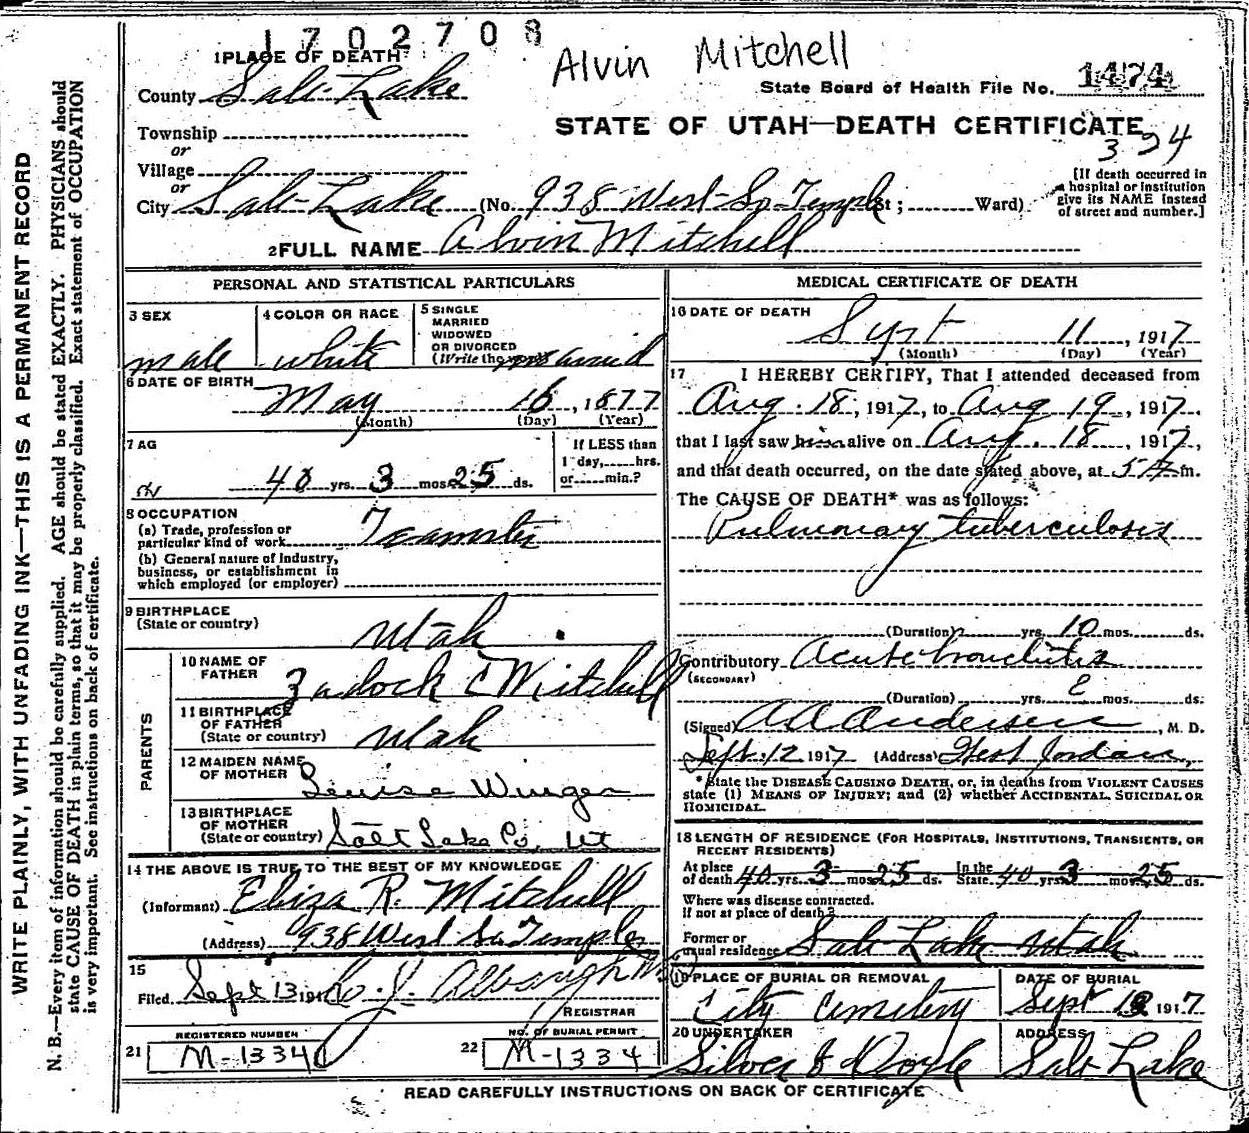 1702708
Alvin Mitchell
1 PLACE OF DEATH
County Salt Lake
State Board of Health File No. 1474
STATE OF UTAH—DEATH CERTIFICATE
394
Township
or
Village
or
City Salt Lake (No. 938 West So Temple St; Ward)
[If death occurred in a hospital or institution give its NAME instead of street and number.]
2 FULL NAME Alvin Mitchell
PERSONAL AND STATISTICAL PARTICULARS
3 SEX
male
4 COLOR OR RACE
white
5 SINGLE
MARRIED
WIDOWED
OR DIVORCED
(Write the married
6 DATE OF BIRTH
May 16, 1877
(Month) (Day) (Year)
7 AG
40 yrs. 3 mos 25 ds.
If LESS than
1 day, hrs.
or min.?
8 OCCUPATION
(a) Trade, profession or
particular kind of work Teamster
(b) General nature of Industry,
business, or establishment in
which employed (or employer)
9 BIRTHPLACE
(State or country) Utah
PARENTS
10 NAME OF
FATHER Zadock C Mitchell
11 BIRTHPLACE
OF FATHER
(State or country) Utah
12 MAIDEN NAME
OF MOTHER Louisa
13 BIRTHPLACE
OF MOTHER
(State or country) Salt Lake Co, Ut
14 THE ABOVE IS TRUE TO THE BEST OF MY KNOWLEDGE
(Informant) Eliza R. Mitchell
(Address) 938 West So Temple
15
Filed Sept 13 191
REGISTRAR
REGISTERED NUMBER
21 M-1334
NO. OF BURIAL PERMIT
22 M-1334
MEDICAL CERTIFICATE OF DEATH
16 DATE OF DEATH
Sept 11, 1917
(Month) (Day) (Year)
17 I HEREBY CERTIFY, That I attended deceased from
Aug. 18, 1917, to Aug 19, 1917,
that I last saw him alive on Aug. 18, 1917,
and that death occurred, on the date stated above, at 5 m.
The CAUSE OF DEATH* was as follows:
Pulmonary tuberculosis
(Duration) yrs 10 mos. ds.
Contributory Acute bronchitis
(SECONDARY)
(Duration) yrs. 2 mos. ds.
(Signed) A A Anderson, M. D.
Sept. 12 1917 (Address) West Jordan,
*State the DISEASE CAUSING DEATH, or, in deaths from VIOLENT CAUSES
state (1) MEANS OF INJURY; and (2) whether ACCIDENTAL, SUICIDAL OR
HOMICIDAL.
18 LENGTH OF RESIDENCE (FOR HOSPITALS, INSTITUTIONS, TRANSIENTS, OR
RECENT RESIDENTS)
At place
of death 40 yrs. 3 mos 25 ds. In the State 40 yrs 3 mos 25 ds.
Where was disease contracted.
If not at place of death?
Former or
usual residence Salt Lake Utah
19 PLACE OF BURIAL OR REMOVAL
City Cemetery
DATE OF BURIAL
Sept 1917
20 UNDERTAKER
Silver & Doyle
ADDRESS
Salt Lake
READ CAREFULLY INSTRUCTIONS ON BACK OF CERTIFICATE
WRITE PLAINLY, WITH UNFADING INK—THIS IS A PERMANENT RECORD
N. B.—Every item of information should be carefully supplied. AGE should be stated EXACTLY. PHYSICIANS should
state CAUSE OF DEATH in plain terms, so that it may be properly classified. Exact statement of OCCUPATION
is very important. See instructions on back of certificate.